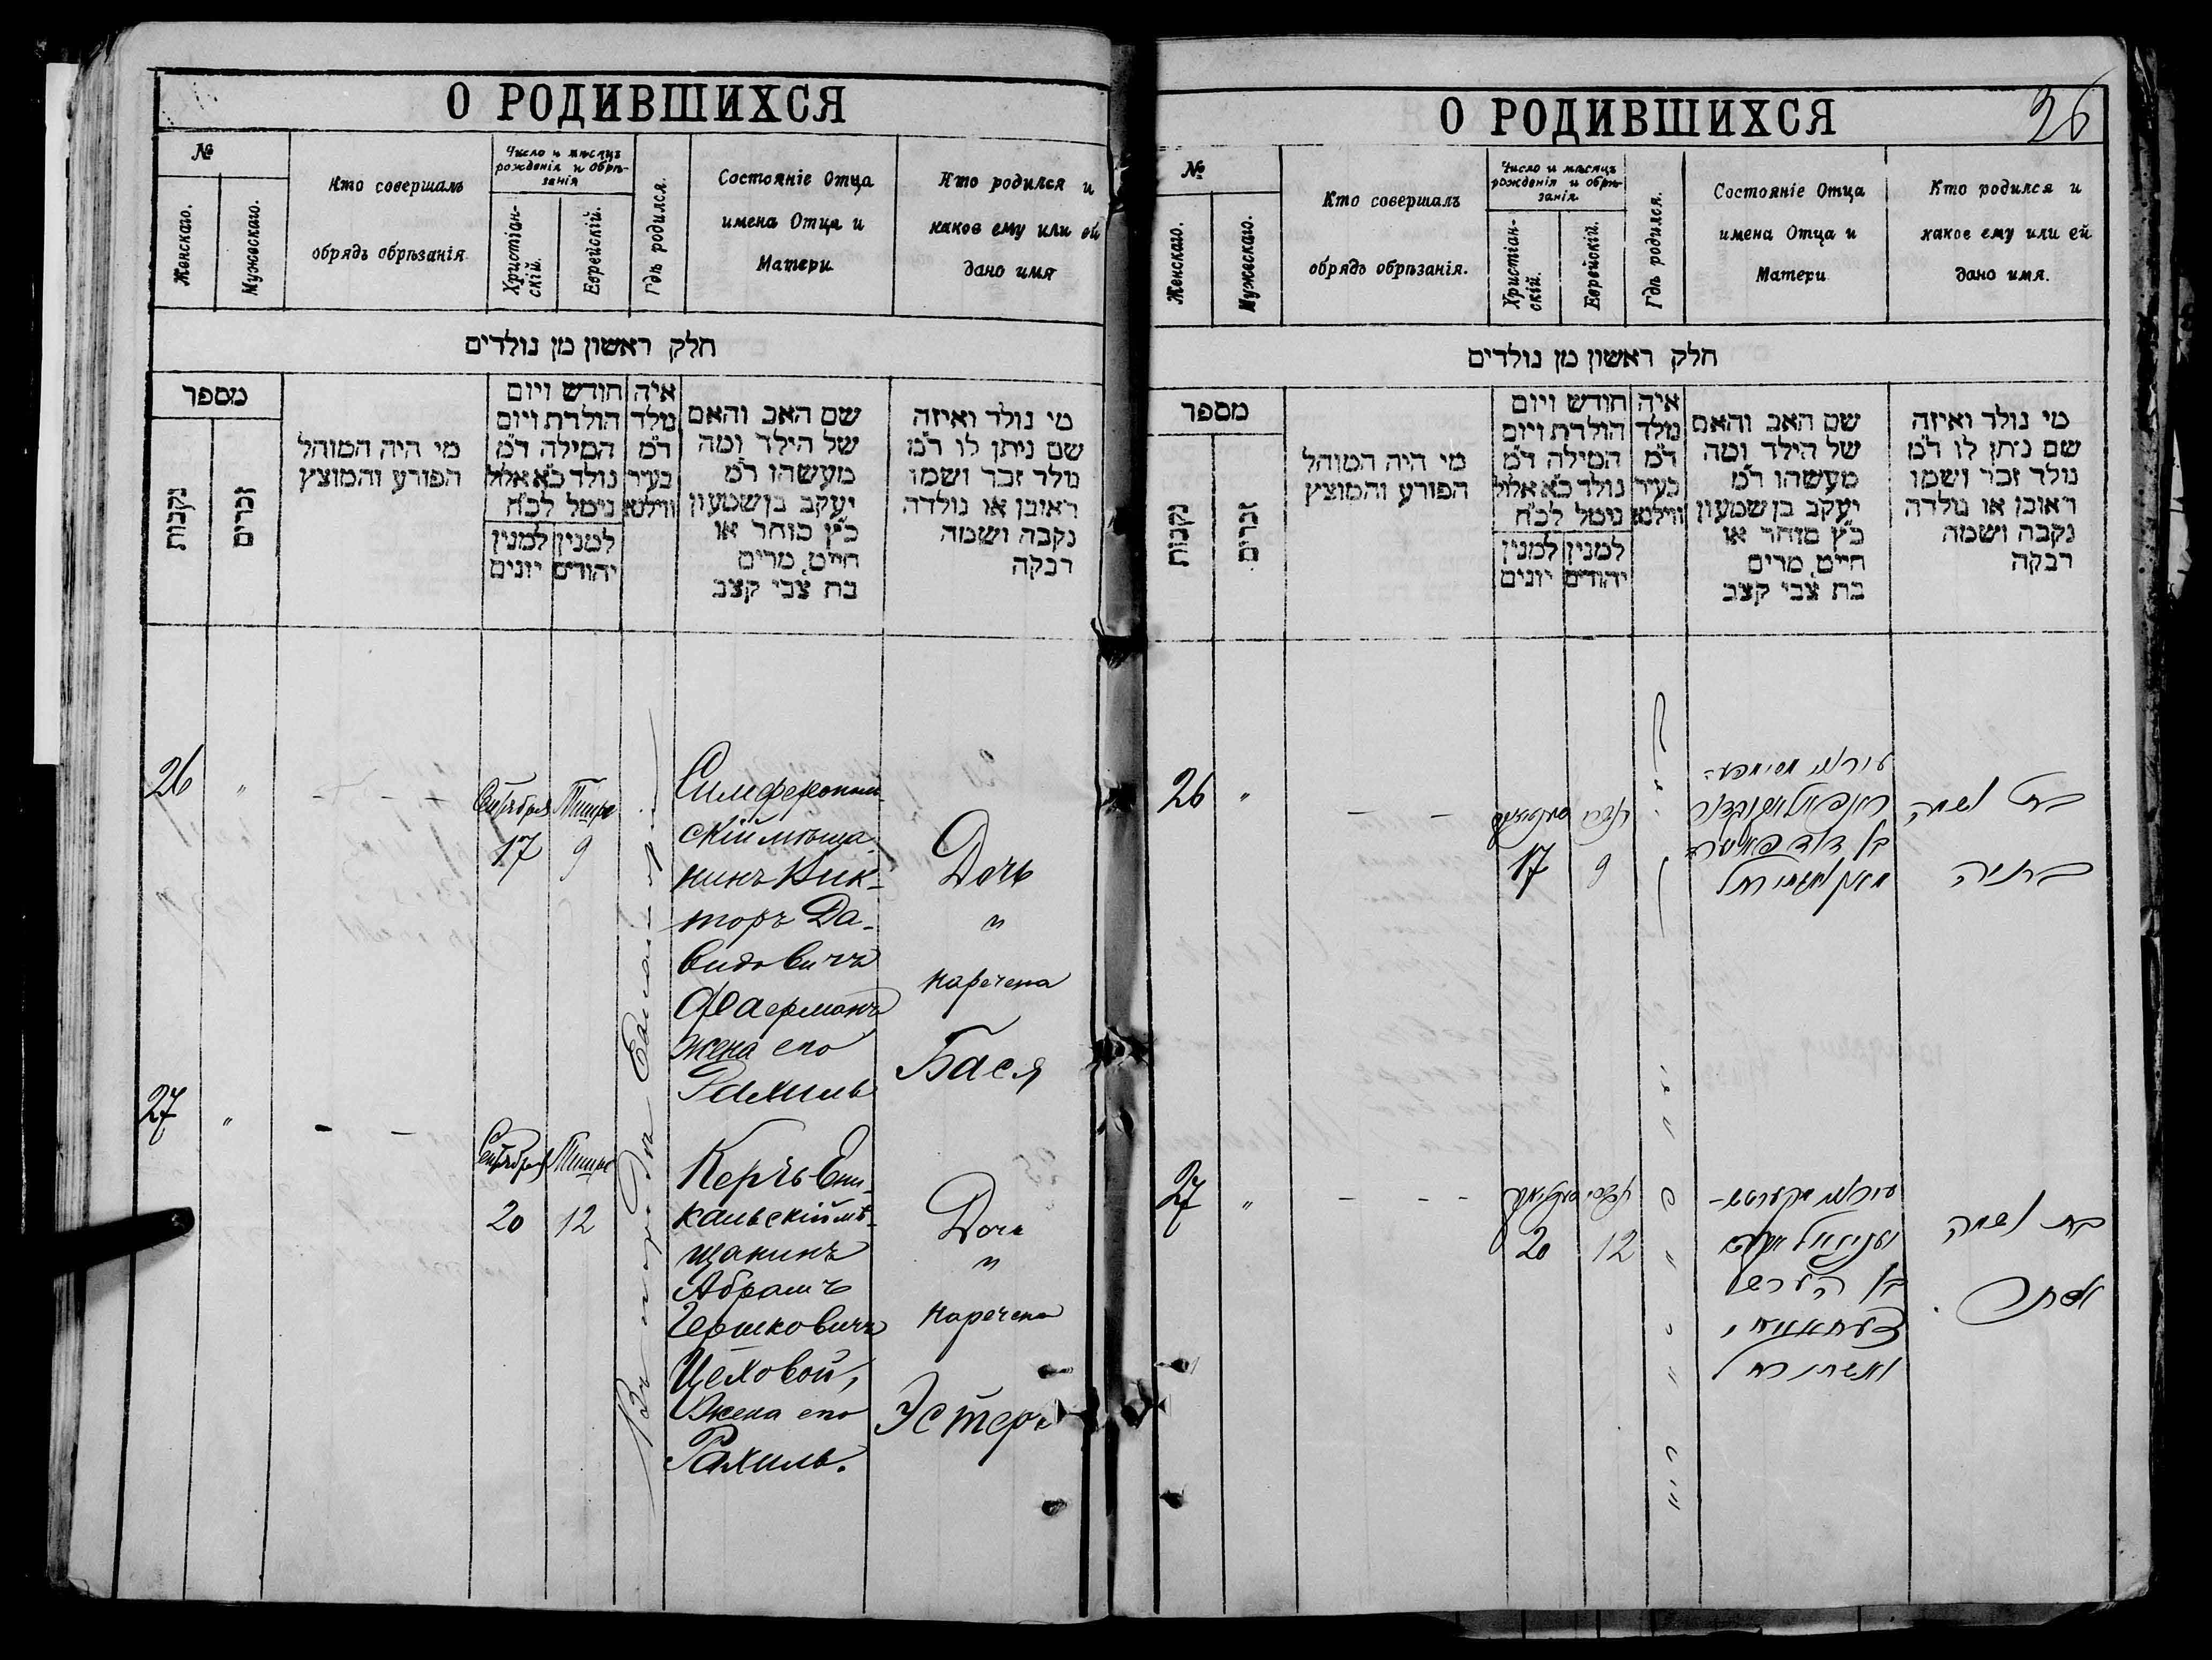 О РОДИВШИХСЯ
№
Женскаго.
Мужескаго.
Кто совершалъ
обрядъ обрѣзанія
Число и мѣсяцъ
рожденія и обрѣ-
занія
Христіан-
скій.
Еврейскій.
Гдѣ родился.
Состояніе Отца
имена Отца и
Матери
Кто родился и
какое ему или ей
дано имя
חלק ראשון מן נולדים
מספר
נקבות
זכרים
מי היה המוהל
הפורע והמוצץ
חודש ויום
הולדת ויום
המילה ד"מ
נולד כ"א אלול
נימל לכ"ח
למנין יהודים
למנין יונים
איה
נולד
ד"מ
בעיר
ווילנא
שם האב והאם
של הילד ומה
מעשהו ד"מ
יעקב בן שמעון
כ"ץ סוחר או
חייט, מרים
בת צבי קצב
מי נולד ואיזה
שם ניתן לו ד"מ
נולד זכר ושמו
ראובן או נולדה
נקבה ושמה
רבקה
26 "
Сентября Тишре
17 9
Симферополь-
скій мѣща-
нинъ Вик-
торъ Да-
видовичъ
Фаерманъ
жена его
Рахиль
Дочь
"
наречена
Бася
27 " - -
Сентября Тишре
20 12
Керчь Ени-
кальскій мѣ-
щанинъ
Абрамъ
Гершковичъ
Цеховой,
Жена его
Рахиль.
Дочь
"
наречена
Эстеръ
О РОДИВШИХСЯ
26
№
Женскаго.
Мужескаго.
Кто совершалъ
обрядъ обрѣзанія.
Число и мѣсяцъ
рожденія и обрѣ-
занія
Христіан-
скій.
Еврейскій.
Гдѣ родился.
Состояніе Отца
имена Отца и
Матери
Кто родился и
какое ему или ей
дано имя.
חלק ראשון מן נולדים
מספר
נקבות
זכרים
מי היה המוהל
הפורע והמוצץ
חודש ויום
הולדת ויום
המילה ד"מ
נולד כ"א אלול
נימל לכ"ח
למנין יהודים
למנין יונים
איה
נולד
ד"מ
בעיר
ווילנא
שם האב והאם
של הילד ומה
מעשהו ד"מ
יעקב בן שמעון
כ"ץ סוחר או
חייט, מרים
בת צבי קצב
מי נולד ואיזה
שם ניתן לו ד"מ
נולד זכר ושמו
ראובן או נולדה
נקבה ושמה
רבקה
26 " - -
תשרי
17 9
בן דוד
בת ושמה
27 " - - -
תשרי
20 12
בן הערש
ואשתו רחל
בת ושמה
אסתר.